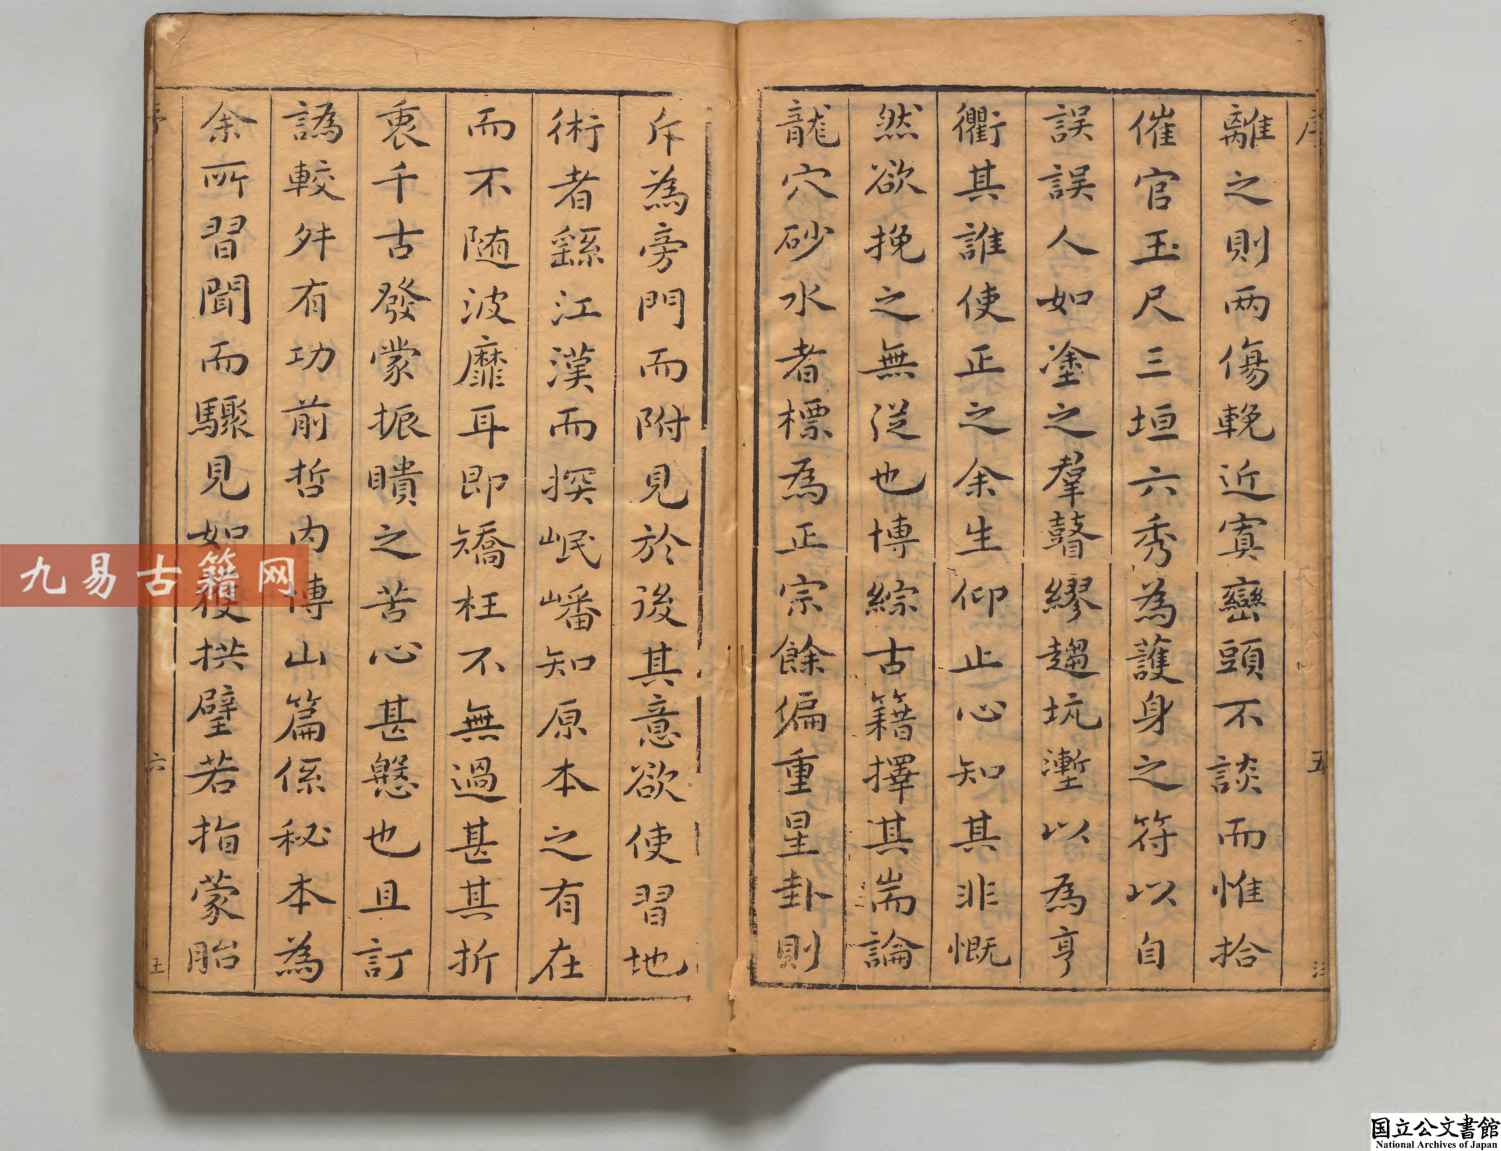 離之則两傷輓近寘巒頭不談而惟拾
催官玉尺三垣六秀為護身之符以自
誤誤人如塗之羣瞽繆趨坑壍以為亨
衢其誰使正之余生仰止心知其非慨
然欲挽之無從也博綜古籍擇其耑論
龍穴砂水者標為正宗餘偏重星卦則
斥為旁門而附見於後其意欲使習地
術者繇江漢而探岷嶓知原本之有在
而不随波靡耳即矯枉不無過甚其折
衷千古發蒙振聵之苦心甚慇也且訂
譌較舛有功前哲内傳山篇係秘本為
余所習聞而驟見如獲拱璧若指蒙胎
序
五
六
九易古籍网
国立公文書館
National Archives of Japan